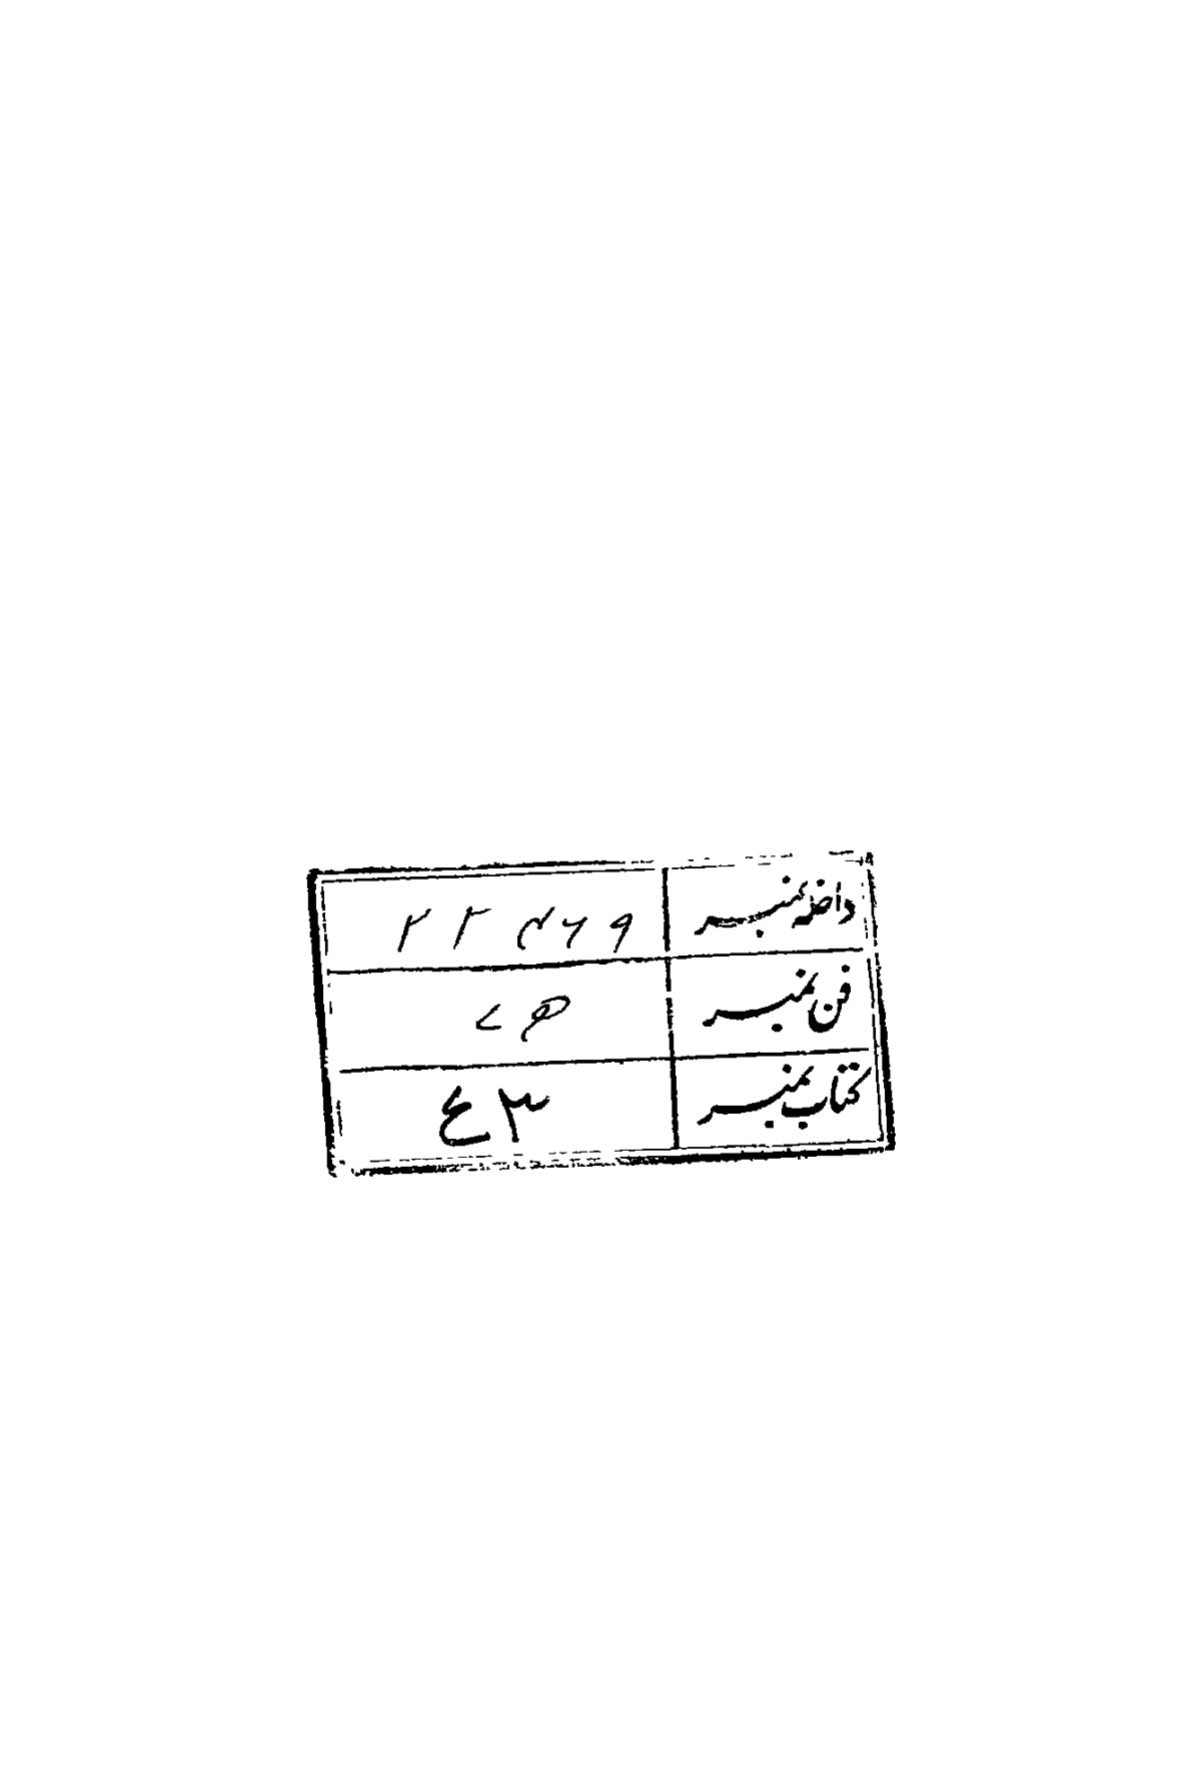 داخلہ نمبر ۲۲۴۶۹
فن نمبر
کتاب نمبر ۳ع